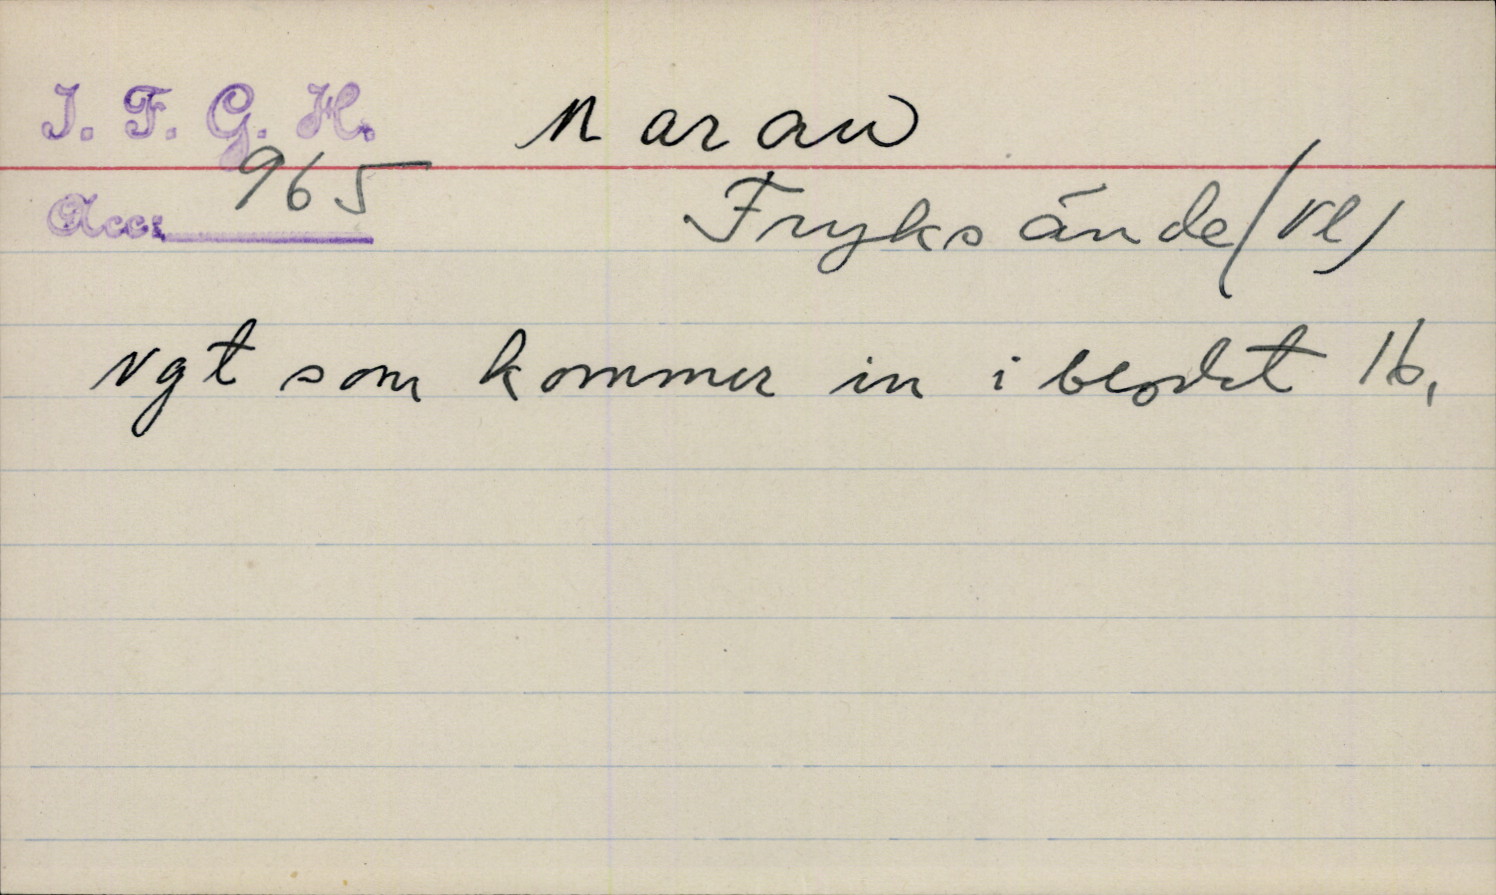 I. F. G. H. Maran
Acc: 965 Fryksände (Vl)
ngt som kommer in i blodet 16.